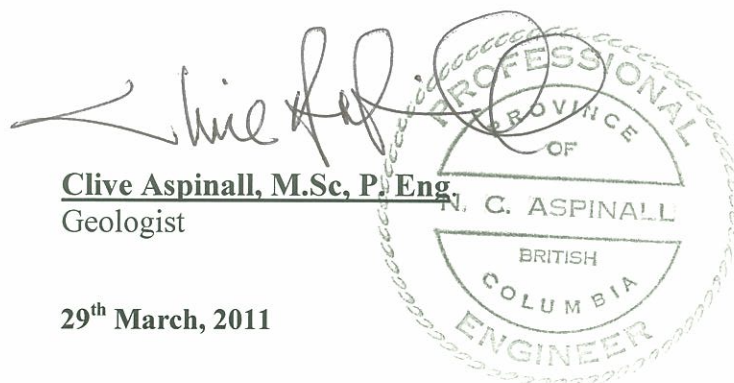 Clive Aspinall, M.Sc, P. Eng.
Geologist
29th March, 2011
PROFESSIONAL
PROVINCE
OF
N. C. ASPINALL
BRITISH
COLUMBIA
ENGINEER